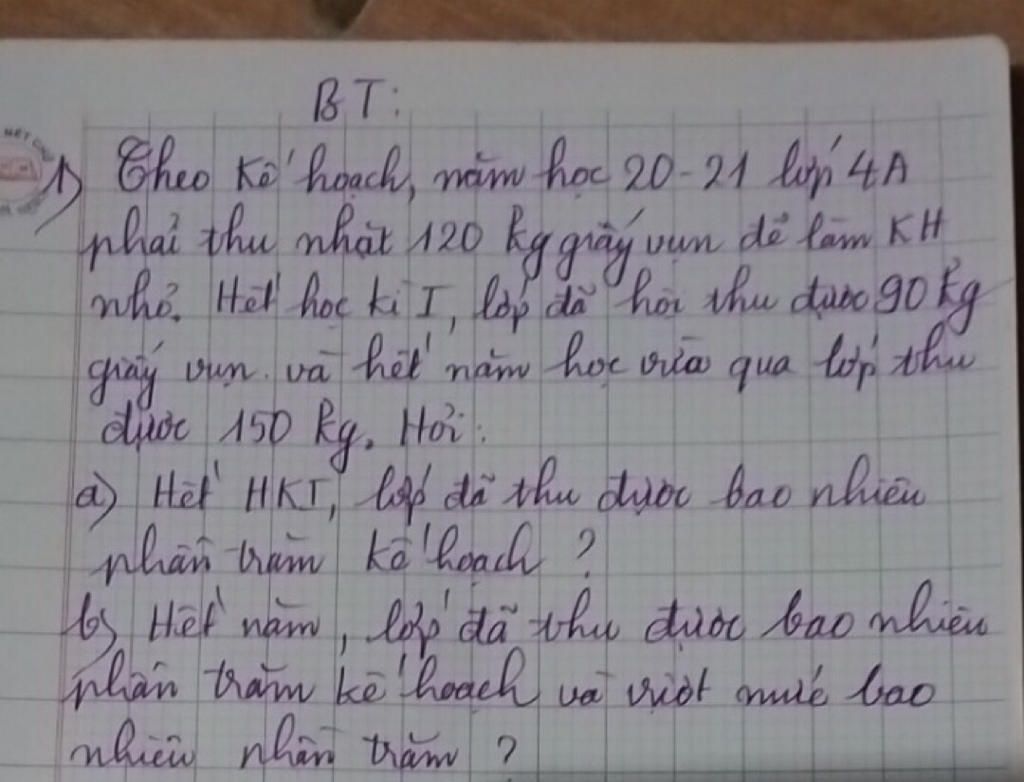 BT:
1) Theo kế hoạch, năm học 20-21 lớp 4A
phải thu nhặt 120 kg giấy vụn để làm KH
nhỏ. Hết học kì I, lớp đã hời thu được 90 kg
giấy vụn và hết năm học vừa qua lớp thu
được 150 kg. Hỏi:
a) Hết HKI, lớp đã thu được bao nhiêu
phần trăm kế hoạch ?
b) Hết năm, lớp đã thu được bao nhiêu
phần trăm kế hoạch và vượt mức bao
nhiêu phần trăm ?